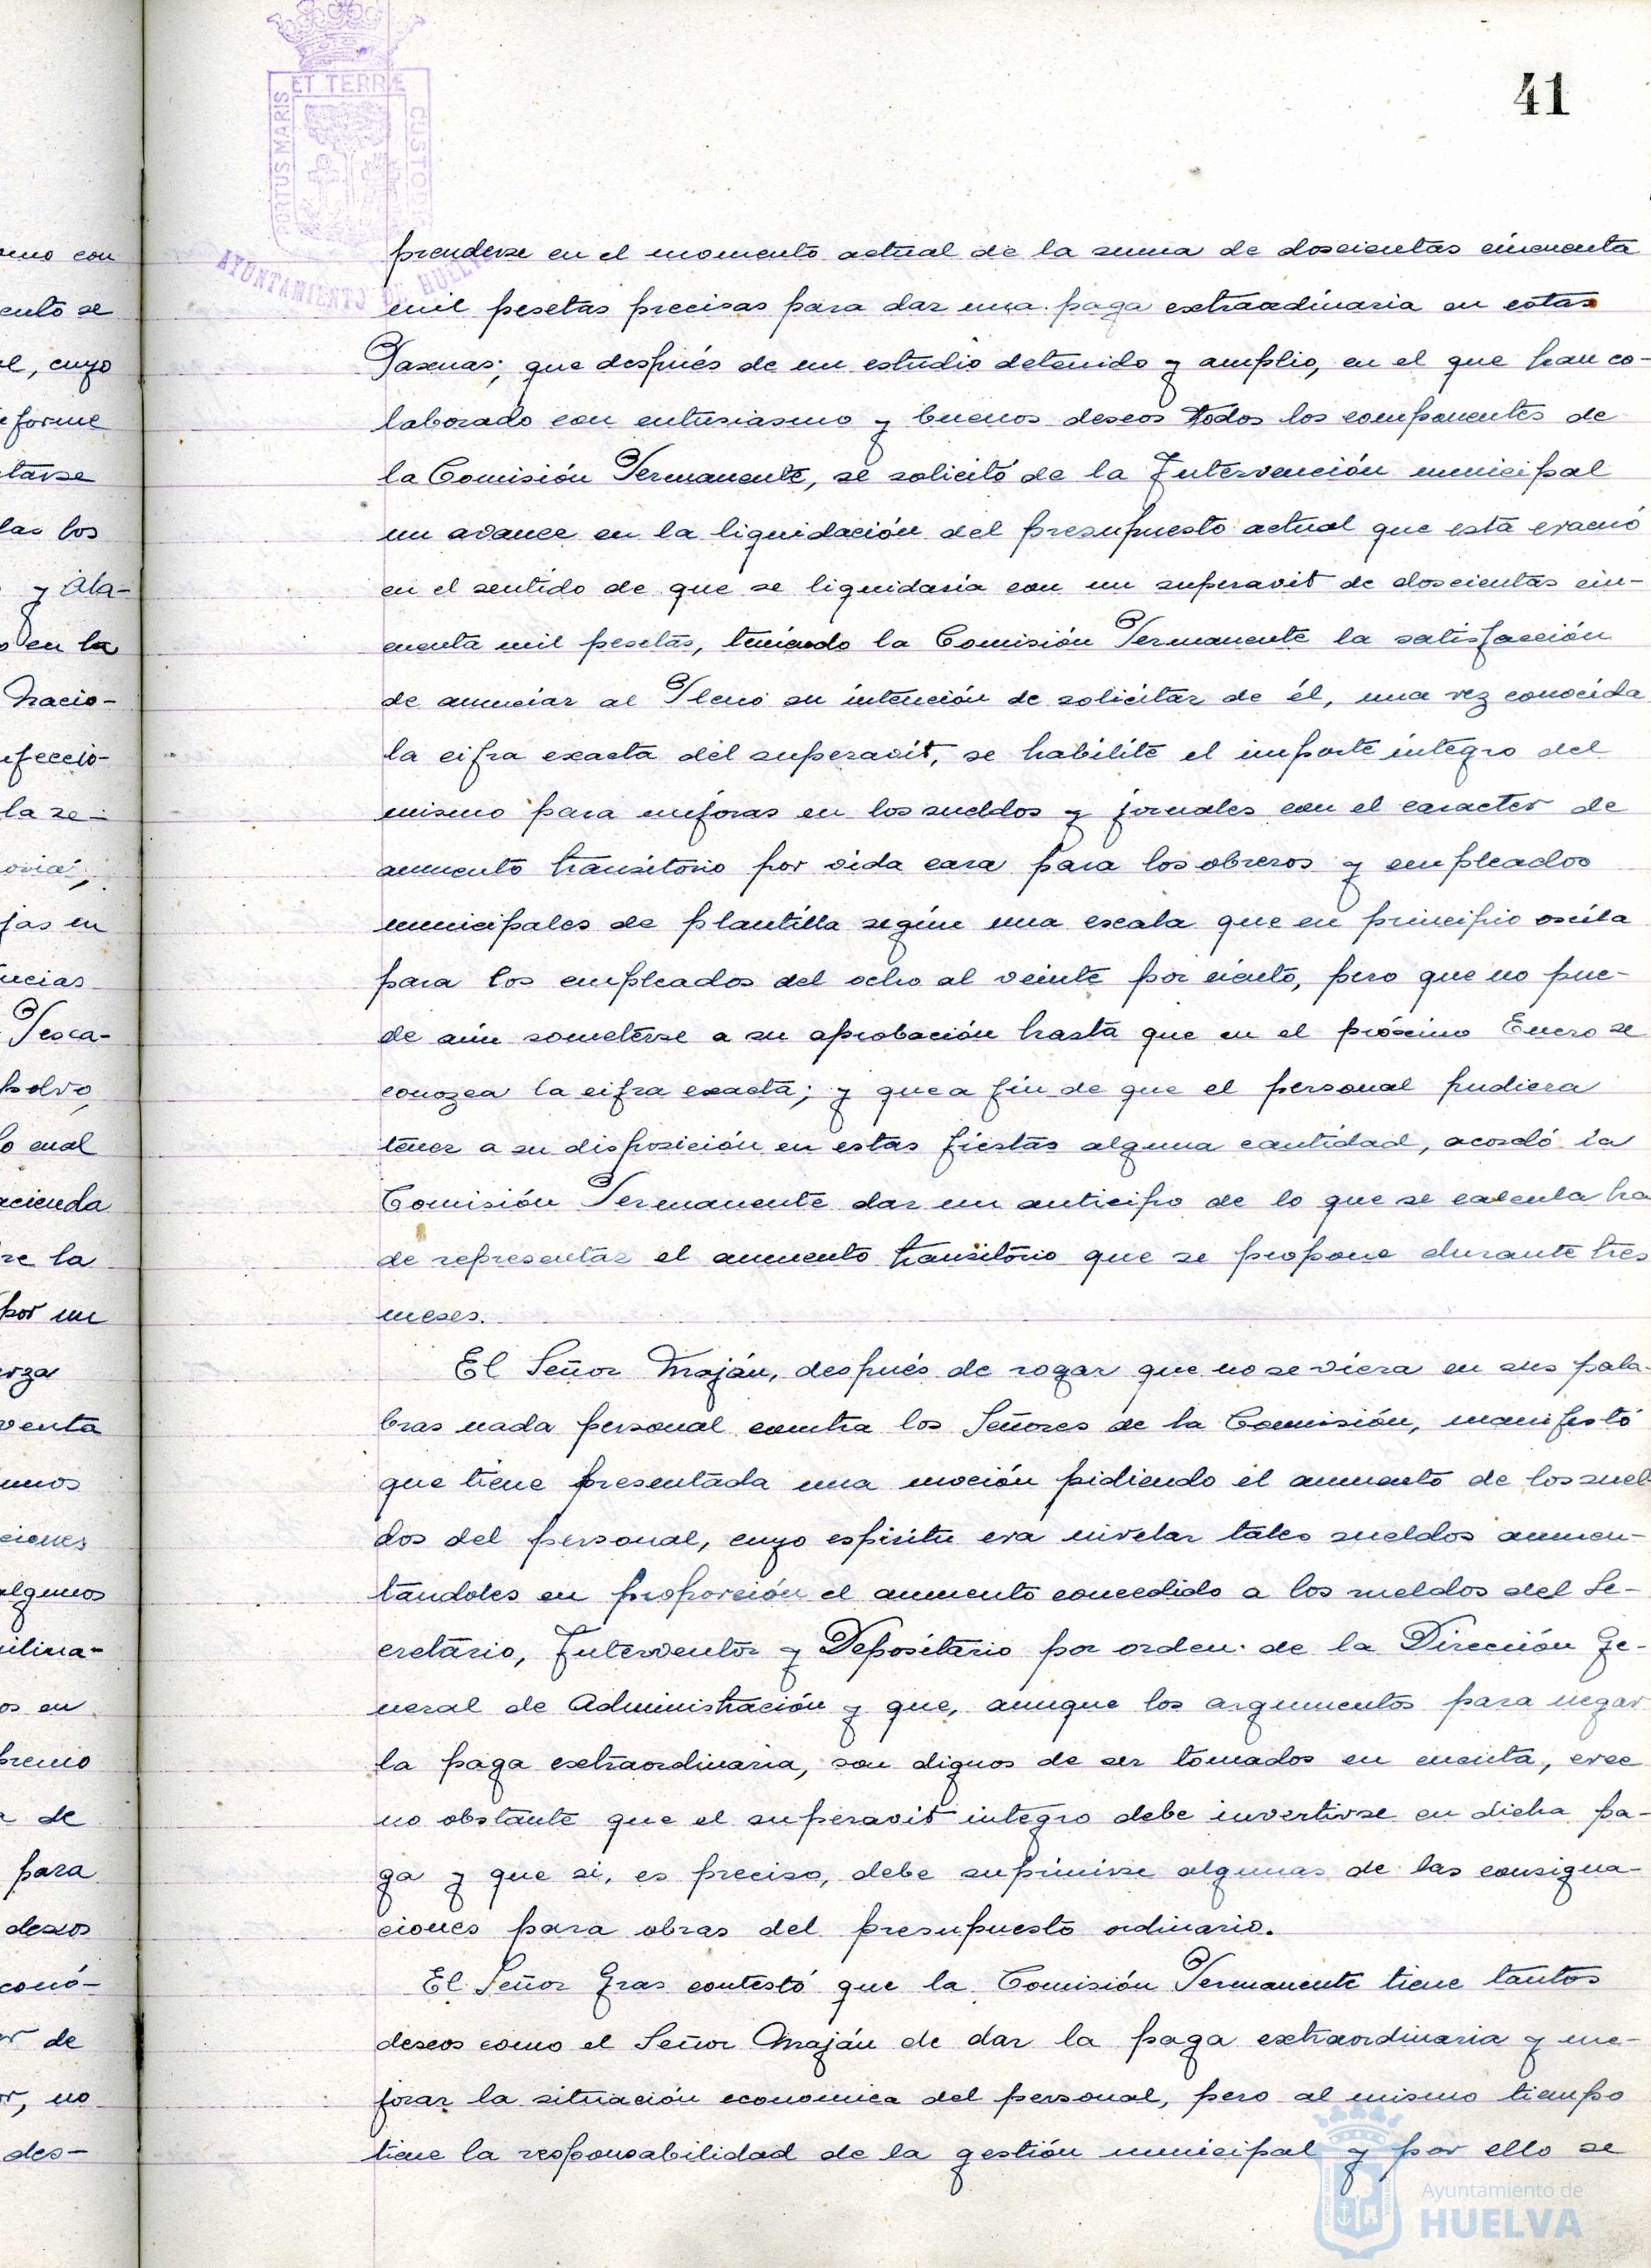 41
PORTUS MARIS ET TERRÆ CUSTOD
AYUNTAMIENTO DE HUELVA
prenderse en el momento actual de la suma de doscientas cincuenta
mil pesetas precisas para dar una paga extraordinaria en estas
Pascuas; que después de un estudio detenido y amplio, en el que han co-
laborado con entusiasmo y buenos deseos todos los componentes de
la Comisión Permanente, se solicitó de la Intervención municipal
un avance en la liquidación del presupuesto actual que está evacuó
en el sentido de que se liquidaria con un superavit de doscientas cin-
cuenta mil pesetas, teniendo la Comisión Permanente la satisfacción
de anunciar al Pleno su intención de solicitar de él, una vez conocida
la cifra exacta del superavit, se habilite el importe integro del
mismo para mejoras en los sueldos y jornales con el caracter de
aumento transitorio por vida cara para los obreros y empleados
municipales de plantilla según una escala que en principio oscila
para los empleados del ocho al veinte por ciento, pero que no pue-
de aún someterse a su aprobación hasta que en el próximo Enero se
conozca la cifra exacta; y que a fin de que el personal pudiera
tener a su disposición en estas fiestas alguna cantidad, acordó la
Comisión Permanente dar un anticipo de lo que se calcula ha
de representar el aumento transitorio que se propone durante tres
meses.
El Señor Maján, después de rogar que no se viera en sus pala-
bras nada personal contra los Señores de la Comisión, manifestó
que tiene presentada una moción pidiendo el aumento de los suel-
dos del personal, cuyo espiritu era nivelar tales sueldos aumen-
tandoles en proporción el aumento concedido a los sueldos del Se-
cretario, Interventor y Depositario por orden de la Dirección Ge-
neral de Administración y que, aunque los argumentos para negar
la paga extraordinaria, son dignos de ser tomados en cuenta, cree
no obstante que el superavit integro debe invertirse en dicha pa-
ga y que si, es preciso, debe suprimirse algunas de las consigna-
ciones para obras del presupuesto ordinario.
El Señor Gras contestó que la Comisión Permanente tiene tantos
deseos como el Señor Maján de dar la paga extraordinaria y me-
jorar la situación economica del personal, pero al mismo tiempo
tiene la responsabilidad de la gestión municipal y por ello se
Ayuntamiento de
HUELVA